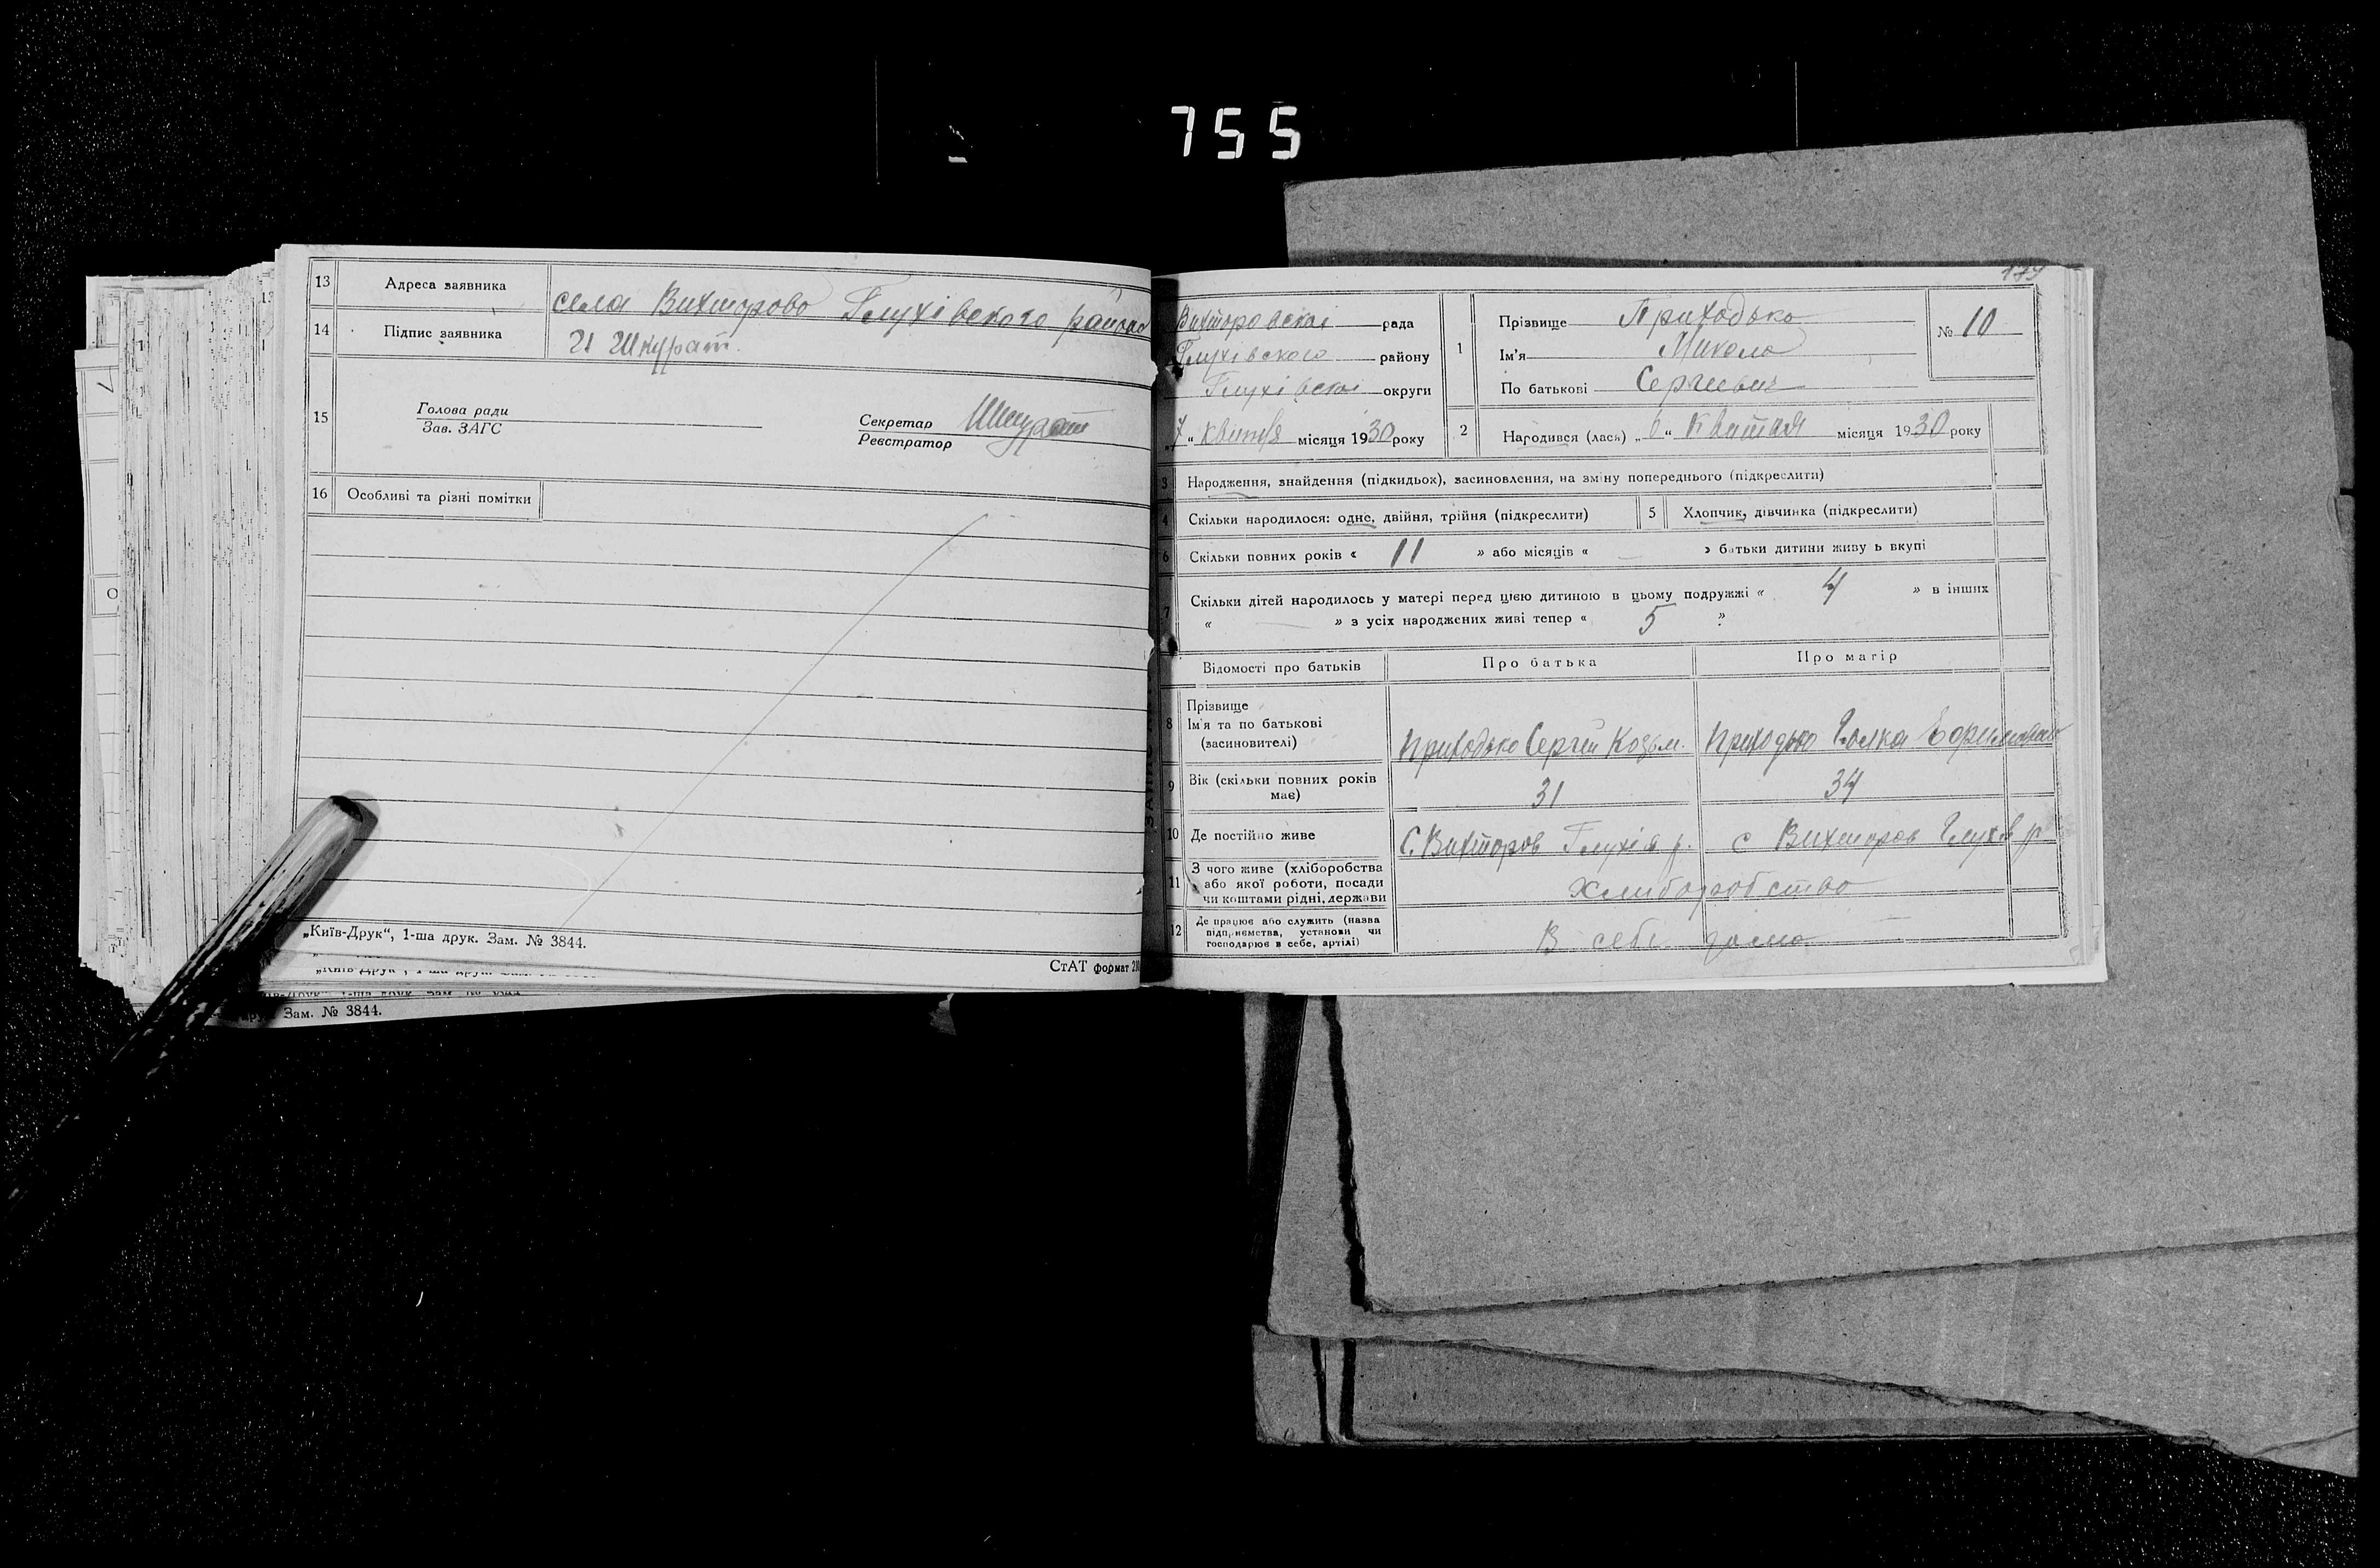 755
13 Адреса заявника села Вихторово Глухівского района
14 Підпис заявника И Шкурат.
15 Голова ради
Зав. ЗАГС
Секретар Шкурат
Реєстратор
16 Особливі та різні помітки
„Київ-Друк“, 1-ша друк. Зам. № 3844.
СтАТ формат
Зам. № 3844.
179
Вихторовскаі рада
Глухівского району
Глухівскаі округи
„7“ квитня місяця 1930 року
1 Прізвище Приходько
Ім'я Микола
По батькові Сергиевич
№ 10
2 Народився (лася) „6“ Квитня місяця 1930 року
3 Народження, знайдення (підкидьох), засиновлення, на зміну попереднього (підкреслити)
4 Скільки народилося: одне, двійня, трійня (підкреслити)
5 Хлопчик, дівчинка (підкреслити)
6 Скільки повних років « 11 » або місяців « — » батьки дитини живу ь вкупі
7 Скільки дітей народилось у матері перед цією дитиною в цьому подружжі « 4 » в інших
« — » з усіх народжених живі тепер « 5 »
Відомості про батьків Про батька Про матір
8 Прізвище
Ім'я та по батькові
(засиновителі)
Приходько Сергей Козьм. Приходько
9 Вік (скільки повних років має) 31 34
10 Де постійно живе С. Вихторов Глухів р. с Вихторов Глухів р
11 З чого живе (хліборобства або якої роботи, посади чи коштами рідні, держави Хлиборобство
12 Де працює або служить (назва підприємства, установи чи господарює в себе, артілі) В себе дома